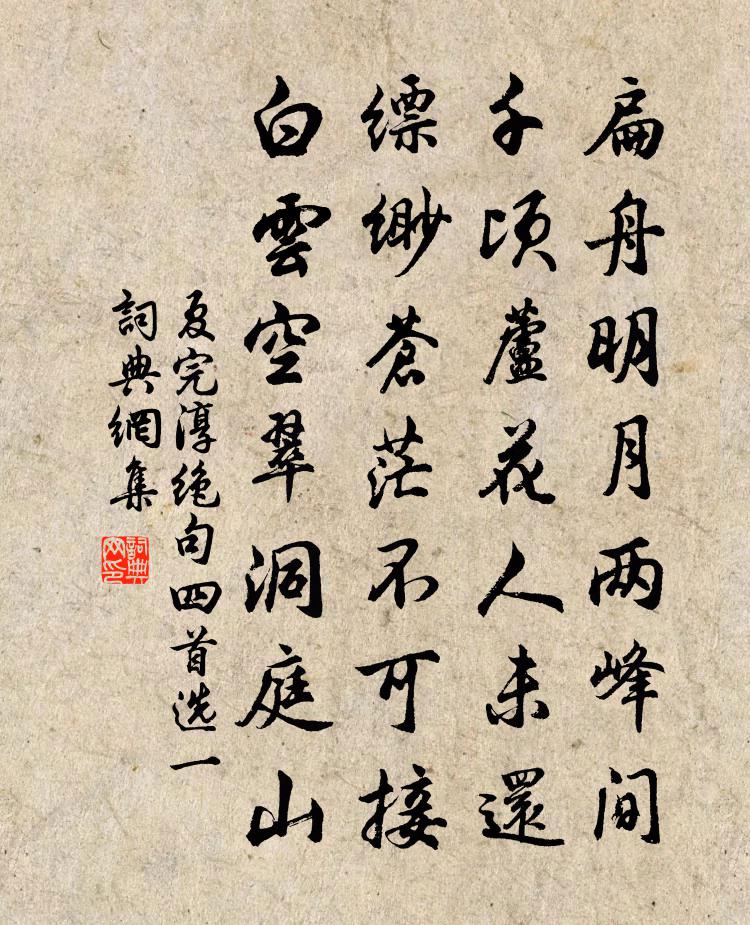 扁舟明月两峰间
千顷蘆花人未還
缥缈蒼茫不可接
白雲空翠洞庭山
夏完淳绝句四首选一
詞典網集
詞典网印